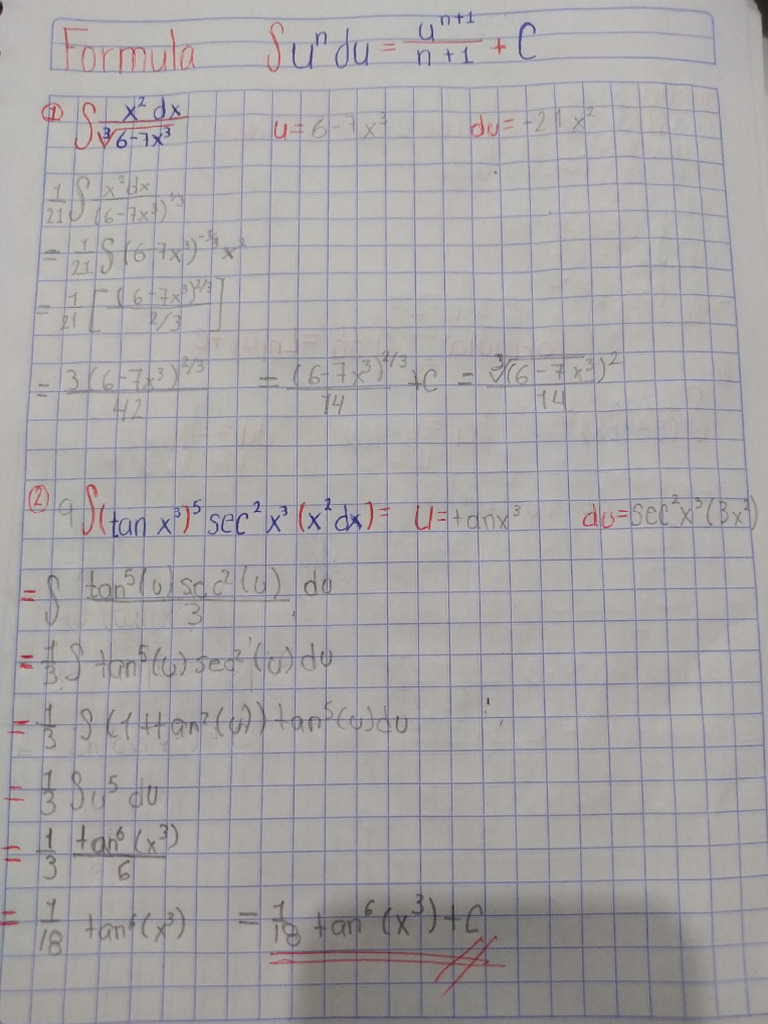 Formula ∫uⁿ du = uⁿ⁺¹/n+1 + C
① ∫ x² dx/∛6-7x³ u = 6-7x³ du = -21x²
1/21 ∫ x² dx/(6-7x³)^1/3
= 1/21 ∫ (6-7x³)^-1/3 x²
= 1/21 [(6-7x³)^2/3/2/3]
= 3(6-7x³)^2/3/42 = (6-7x³)^2/3/14 + C = ∛(6-7x³)²/14
② ∫(tan x³)⁵ sec² x³ (x² dx) = U = tan x³ du = sec² x³ (3x²)
= ∫ tan⁵(u) sec²(u)/3 du
= 1/3 ∫ tan⁵(u) sec²(u) du
= 1/3 ∫ (1+tan²(u)) tan⁵(u) du
= 1/3 ∫ u⁵ du
= 1/3 tan⁶(x³)/6
= 1/18 tan⁶(x³) = 1/18 tan⁶(x³) + C